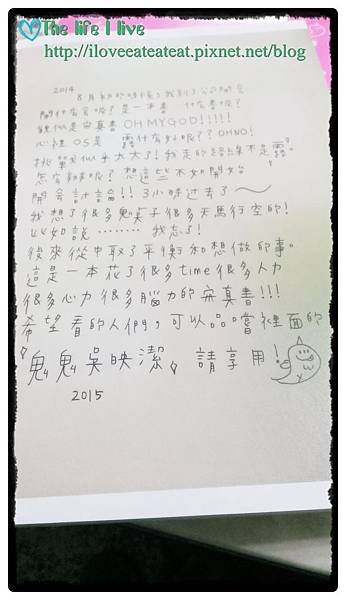 The life I live
http://iloveeateateat.pixnet.net/blog
2014
8月初的時候，我到了公司開會
開什麼會呢？是一本書 什麼書呢？
就是寫真書 OH MY GOD!!!!!
心裡OS是 露什麼好呢？？OHNO!
挑戰似乎太大了！我走的路線不是露！
怎麼辦呢？想這些不如開始
開會討論!! 3小時过去了～
我想了很多鬼桌子很多天馬行空的！
比如說 ........ 我忘了！
後來從中取了平衡和想做的事。
這是一本花了很多time很多人力
很多心力很多腦力的寫真書!!!
希望看的人們，可以品嚐裡面的
鬼鬼吳映潔，請享用！
2015